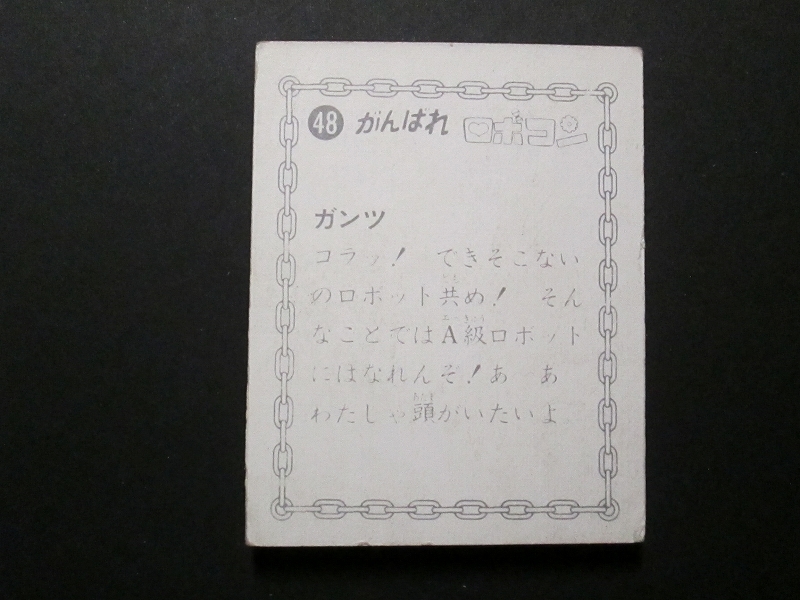 48 がんばれ ロボコン
ガンツ
コラッ! できそこない
のロボット共め! そん
なことではA級ロボット
にはなれんぞ!あーあ
わたしゃ頭がいたいよ。